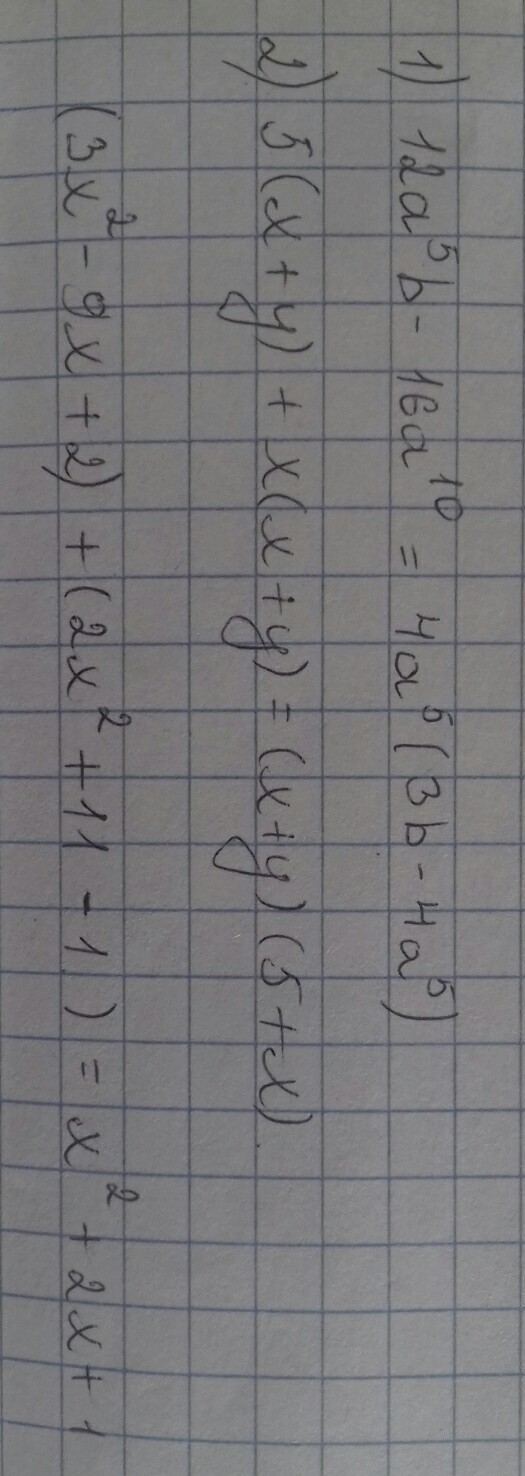 1) 12a⁵b - 16a¹⁰ = 4a⁵(3b - 4a⁵)
2) 5(x+y) + x(x+y) = (x+y)(5+x)
(3x² - 9x + 2) + (2x² + 11 - 1) = x² + 2x + 1